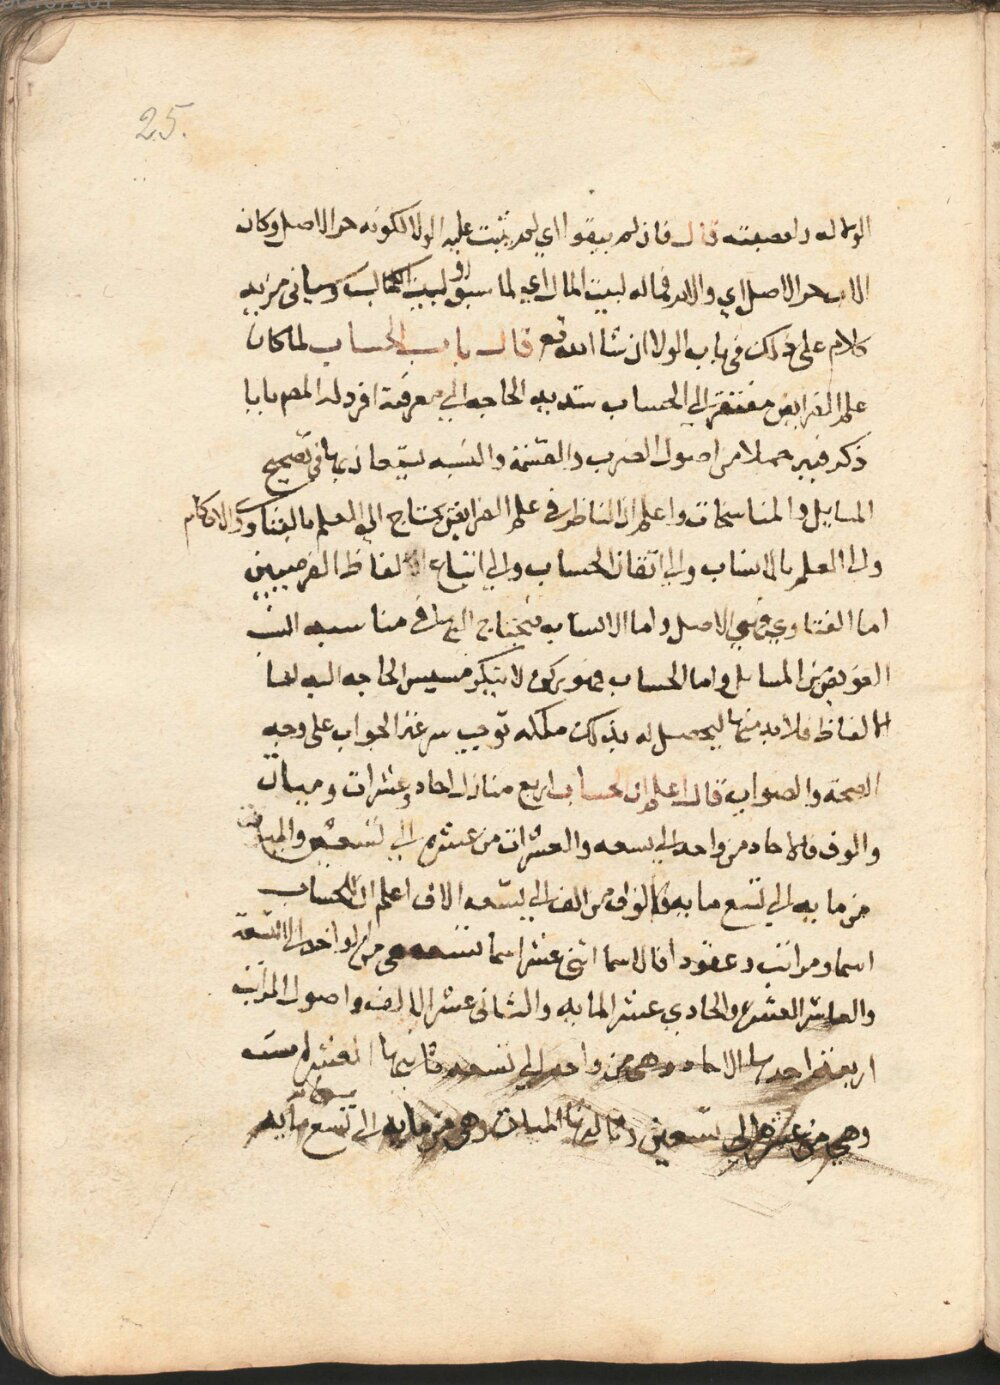 25.
الولا له ولعصبته قال فان لم يبقوا اي لم يثبت عليه الولا لكونه حر الاصل وكان
الاب حر الاصل اي والام فماله لبيت المال اي لما سبق وسياتي مزيد
كلام على ذلك في باب الولا ان شا الله تع قال باب الحساب لما كان
علم الفرايض مفتقر الي الحساب شديد الحاجه الي معرفته افرد له المص بابا
ذكر فيه جملا من اصول الضرب والقسمة والنسبه يستعان بها في تصحيح
المسايل والمناسخات واعلم ان الناظر في علم الفرايض يحتاج الي العلم بالفتاوي والاحكام
والي العلم بالانساب والي اتقان الحساب والي اتباع الالفاظ الفرضيين
اما الفتاوي فهي الاصل واما الانساب فيحتاج اليها في مناسبه النسب
العويص من المسايل واما الحساب فهو ركن لا ينكر مسيس الحاجه اليه اما
الالفاظ فلا بد منها ليحصل له بذلك ملكه توجب سرعة الجواب على وجه
الصحة والصواب قال اعلم ان للحساب اربع منازل احاد وعشرات وميات
والوف فالاحاد من واحد الي تسعه والعشرات من عشره الي تسعين والميات
من مايه الي تسع مايه والالوف من الف الي تسعه الاف اعلم ان للحساب
اسما ومراتب وعقود افالاسما اثني عشر اسما تسعه هي من الواحد الي التسعة
والعاشر العشره والحادي عشر المايه والثاني عشر الالف واصول المراتب
اربعة احدها الاحاد وهي من واحد الي تسعه ثانيها العشرات
وهي من عشره الي تسعين وثالثها الميات وهي من مايه الي تسع مايه